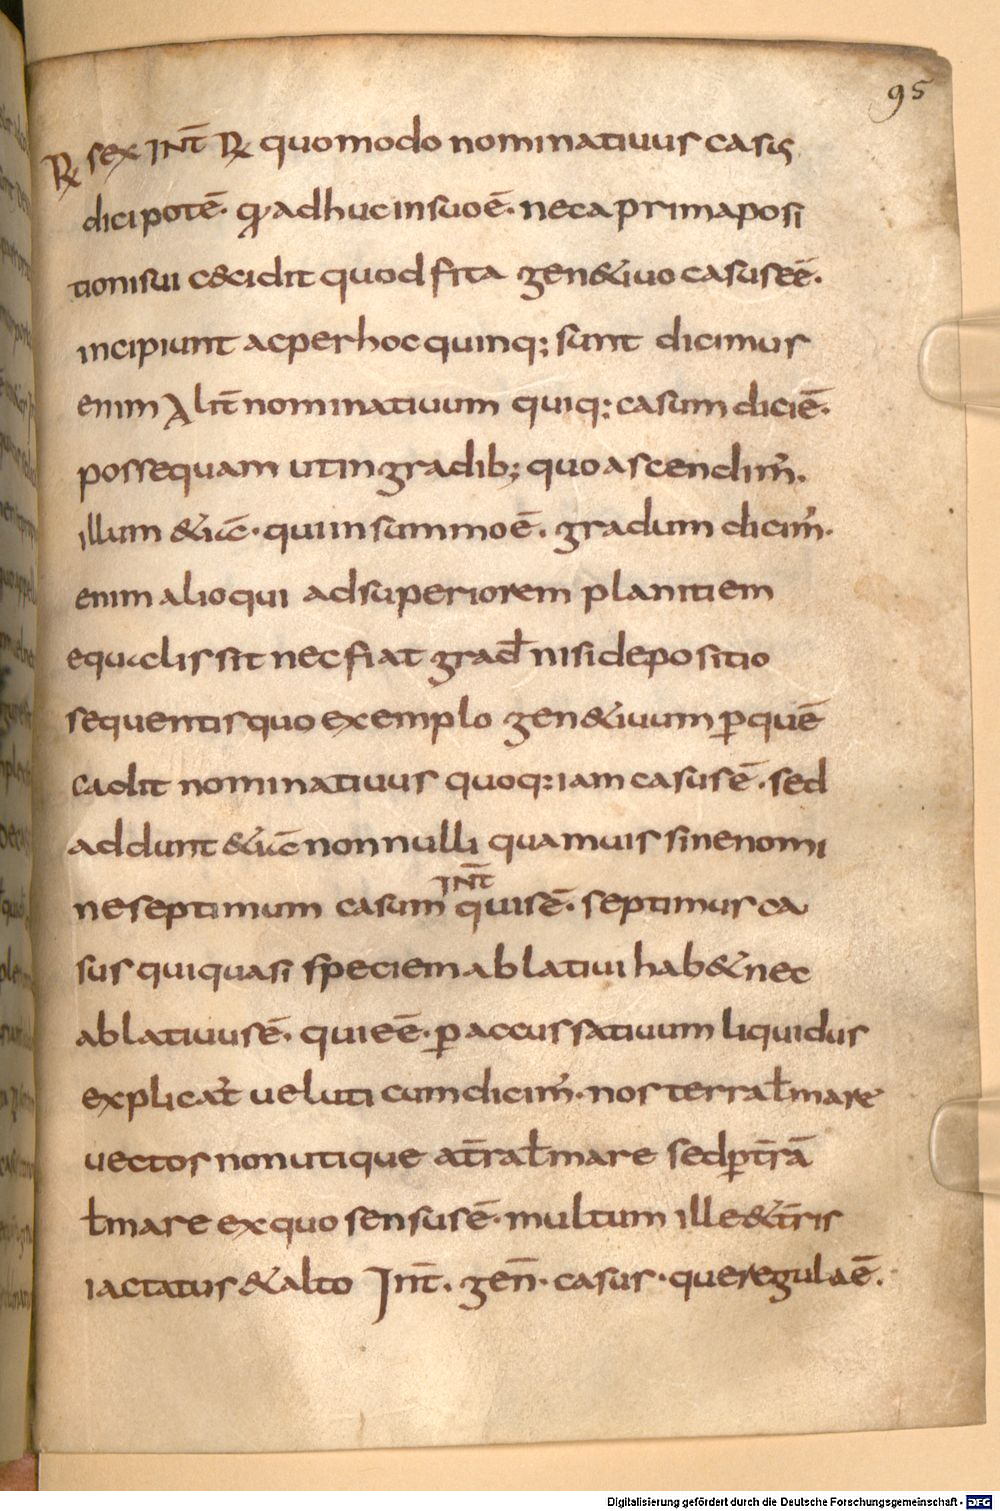 95
R sex INT̄ R quomodo nominatiuus casus
dici potē· q adhuc in suo ē· nec a prima posi
tioni sui cecidit quod fit a gen&iuo casus eē·
incipiunt ac per hoc quinq; sunt dicimus
enim lit̄ nominatiuum quiq; casum diciē·
posse quam ut in gradib; quo ascendim̄·
illum &iā· qui in summo ē· gradum dicim̄·
enim alioqui ad superiorem planitiem
equalis sit nec fiat grad̄ nisi depositio
sequentis quo exemplo gen&iuum p̄ quē
cadit nominatiuus quoq; iam casus ē· sed
addunt &iā nonnulli quamuis sine nomi
ne septimum casum INT̄ quis ē· septimus ca
sus qui quasi speciem ablatiui hab& nec
ablatiuus ē· qui eē· p̄ accussatiuum liquidus
explicat̄ ueluti cum dicim̄· nos terra ł mare
uectos non utique at̄ra ł mare sed p̄ t̄rā
ł mare ex quo sensus ē· multum ille & t̄ris
iactatus & alto Int̄· gen̄· casus· que regula ē·
Digitalisierung gefördert durch die Deutsche Forschungsgemeinschaft - DFG